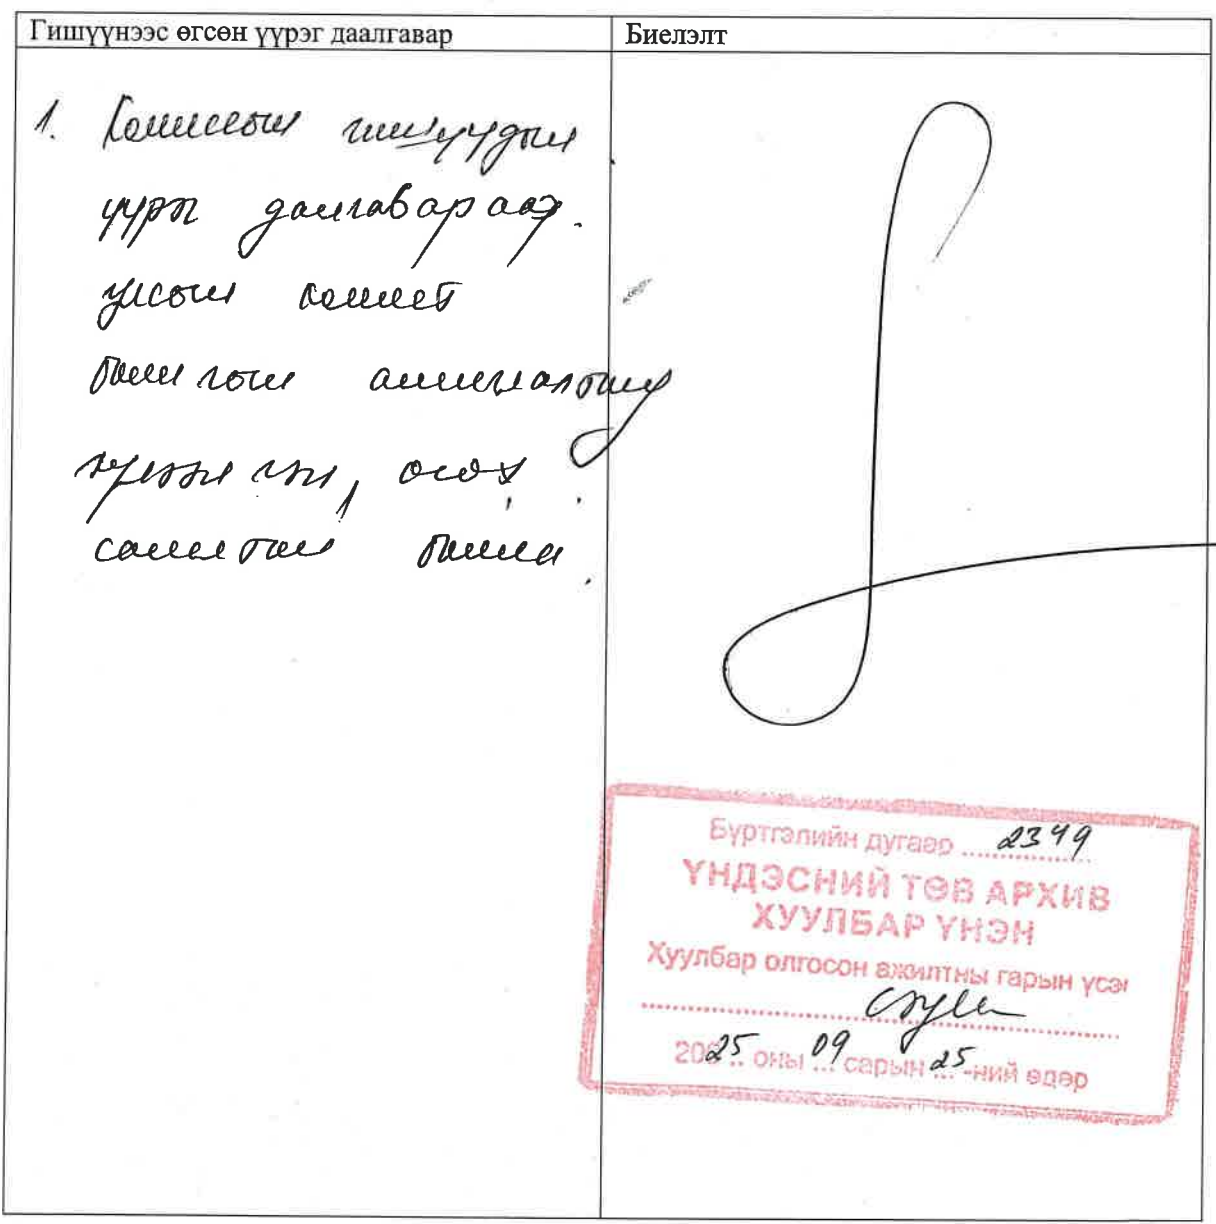 Гишүүнээс өгсөн үүрэг даалгавар
Биелэлт
1. Комиссын гишүүдын
үүрэг даалгавараар
улсын комисс
байнгын ажиллагаанд
өгөх
саналтай байна.
Бүртгэлийн дугаар ..... 2349
ҮНДЭСНИЙ ТӨВ АРХИВ
ХУУЛБАР ҮНЭН
Хуулбар олгосон ажилтны гарын үсэг
2025 оны 09 сарын 25-ний өдөр